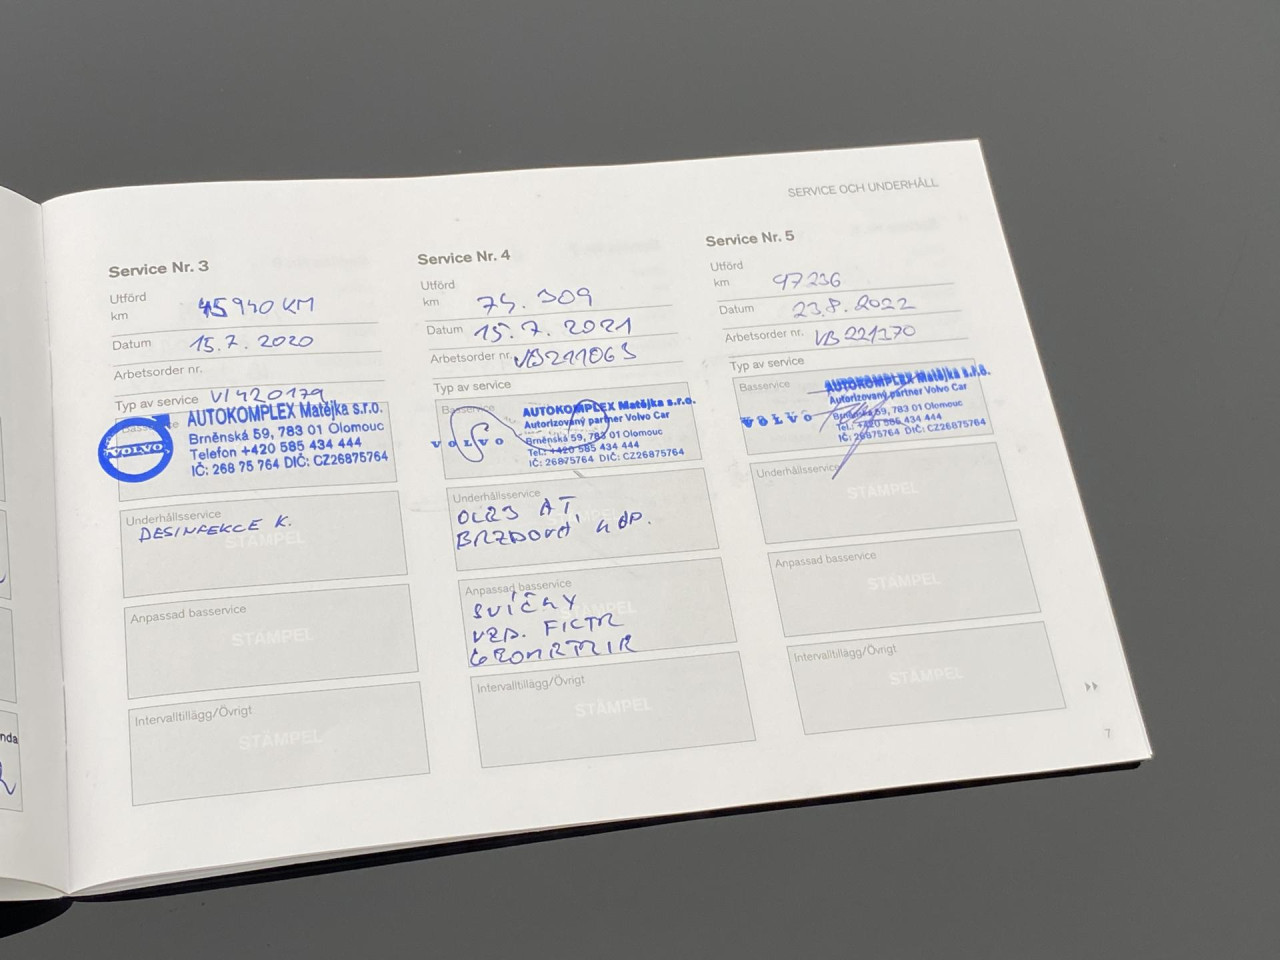 SERVICE OCH UNDERHÅLL
Service Nr. 3
Utförd
km 45940 KM
Datum 15.7.2020
Arbetsorder nr.
Typ av service V1420179
VOLVO
AUTOKOMPLEX Matějka s.r.o.
Brněnská 59, 783 01 Olomouc
Telefon +420 585 434 444
IČ: 268 75 764 DIČ: CZ26875764
Underhållsservice
DESINFEKCE K.
STÄMPEL
Anpassad basservice
STÄMPEL
Intervalltillägg/Övrigt
STÄMPEL
Service Nr. 4
Utförd
km 74.309
Datum 15.7.2021
Arbetsorder nr. VB211063
Typ av service
Basservice
VOLVO
AUTOKOMPLEX Matějka s.r.o.
Autorizovaný partner Volvo Car
Brněnská 59, 783 01 Olomouc
Tel.: +420 585 434 444
IČ: 26875764 DIČ: CZ26875764
Underhållsservice
OLEJ AT
BRZDOVÁ KAP.
Anpassad basservice
SVÍČKY
VZD. FILTR
STÄMPEL
Intervalltillägg/Övrigt
STÄMPEL
Service Nr. 5
Utförd
km 97236
Datum 23.8.2022
Arbetsorder nr. VB221170
Typ av service
Basservice
VOLVO
AUTOKOMPLEX Matějka s.r.o.
Autorizovaný partner Volvo Car
Brněnská 59, 783 01 Olomouc
Tel.: +420 585 434 444
IČ: 26875764 DIČ: CZ26875764
Underhållsservice
STÄMPEL
Anpassad basservice
STÄMPEL
Intervalltillägg/Övrigt
STÄMPEL
7
nda